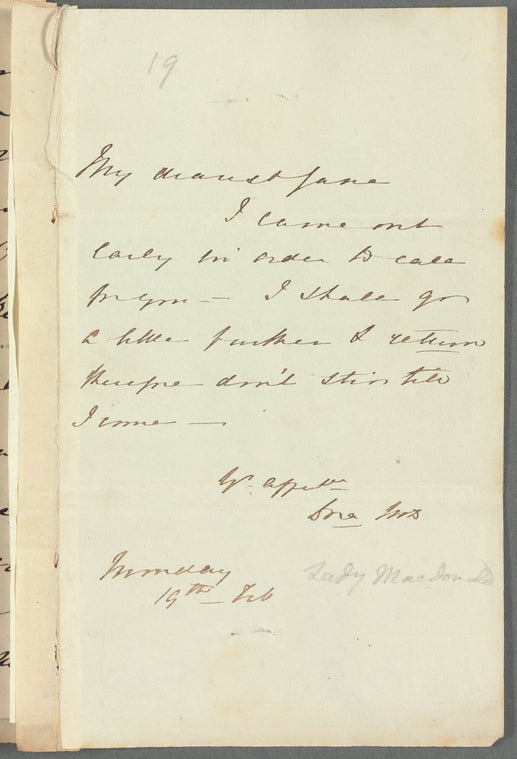 19
My dearest Jane
I came out
early in order to call
for you — I shall go
a little further & return
therefore don't stir till
I come —
Yr. affecte
Monday
Lady MacDonald
19th Feb